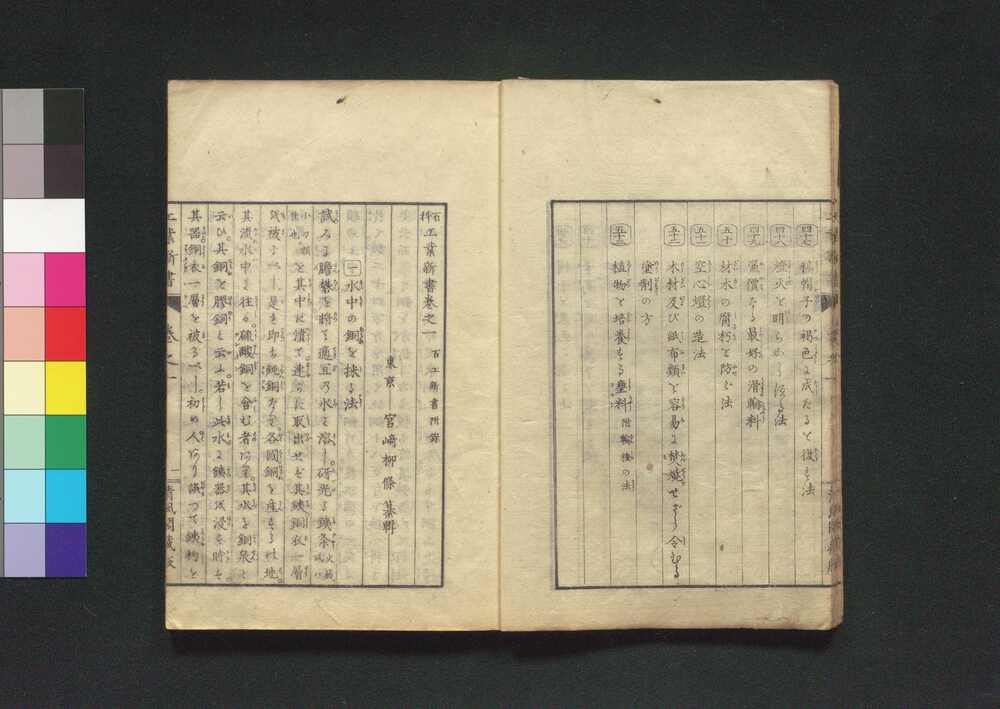 四十七 絨帽子の褐色に成たるを復す法
四十八 燈火を明らかにする法
四十九 廉價なる最好の滑輪料
五十 材木の腐朽を防ぐ法
五十一 空心燈の造法
五十二 木材及び紙布類を容易に焚燃せざら令むる
塗劑の方
五十三 植物を培養する塵料
石科工業新書巻之一 百工新書附錄
東京 宮崎柳條 纂輯
一 水中の銅を捄る法
試みに膽礬を將て適宜の水を溶し研光る鐵条
を其中に漬て速に取出せば其鐵銅衣一層
を被る
是を即ち純銅なり各國銅を産するの地
其流水中に往々硫酸銅を含む者あり其水を銅泉と
云ひ其銅を膠銅と云ふ若し此水に鐵器を浸す時は
其器銅衣一層を被るべし初め人あり誤つて鐵物を
工業新書 巻之一 一 清風閣藏板